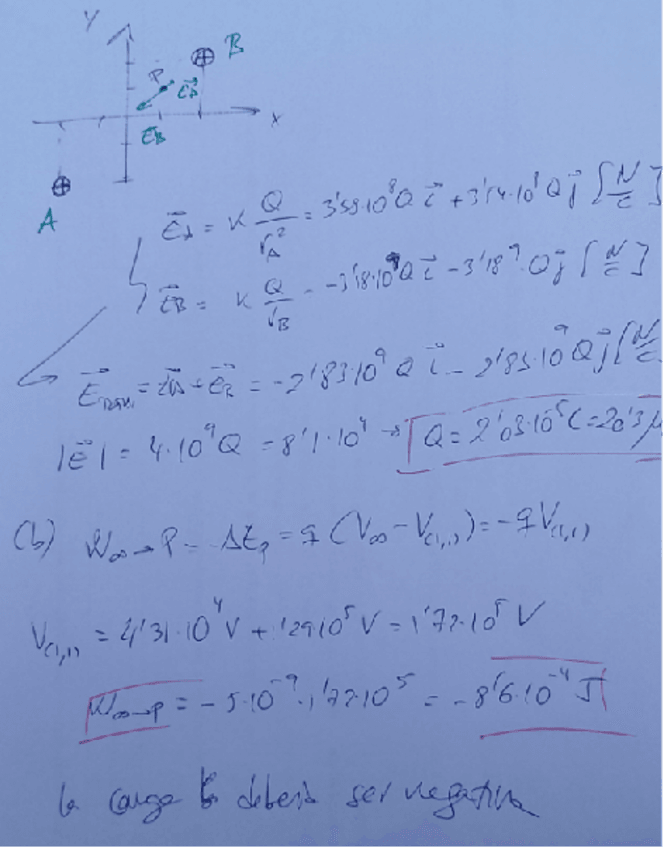 Y
B
P
E⃗A
X
E⃗B
A
E⃗A = K Q/rA² = 3'53·10⁸Q i⃗ + 3'54·10⁸ Q j⃗ [N/C]
E⃗B = K Q/rB = -3'18·10⁹Q i⃗ - 3'18⁹·Q j⃗ [N/C]
E⃗TOTAL = E⃗A + E⃗B = -2'83·10⁹ Q i⃗ - 2'83·10⁹ Q j⃗ [N/C
|E⃗| = 4·10⁹Q = 8'1·10⁴ → Q = 2'03·10⁻⁵C = 20'3μ
(b) W∞→P = -ΔEp = q (V∞ - V(1,1)) = -q V(1,1)
V(1,1) = 4'31·10⁴ V + 1'29·10⁵ V = 1'72·10⁵ V
W∞→P = -5·10⁻⁹·1'72·10⁵ = -8'6·10⁻⁴ J
la carga B debería ser negativa